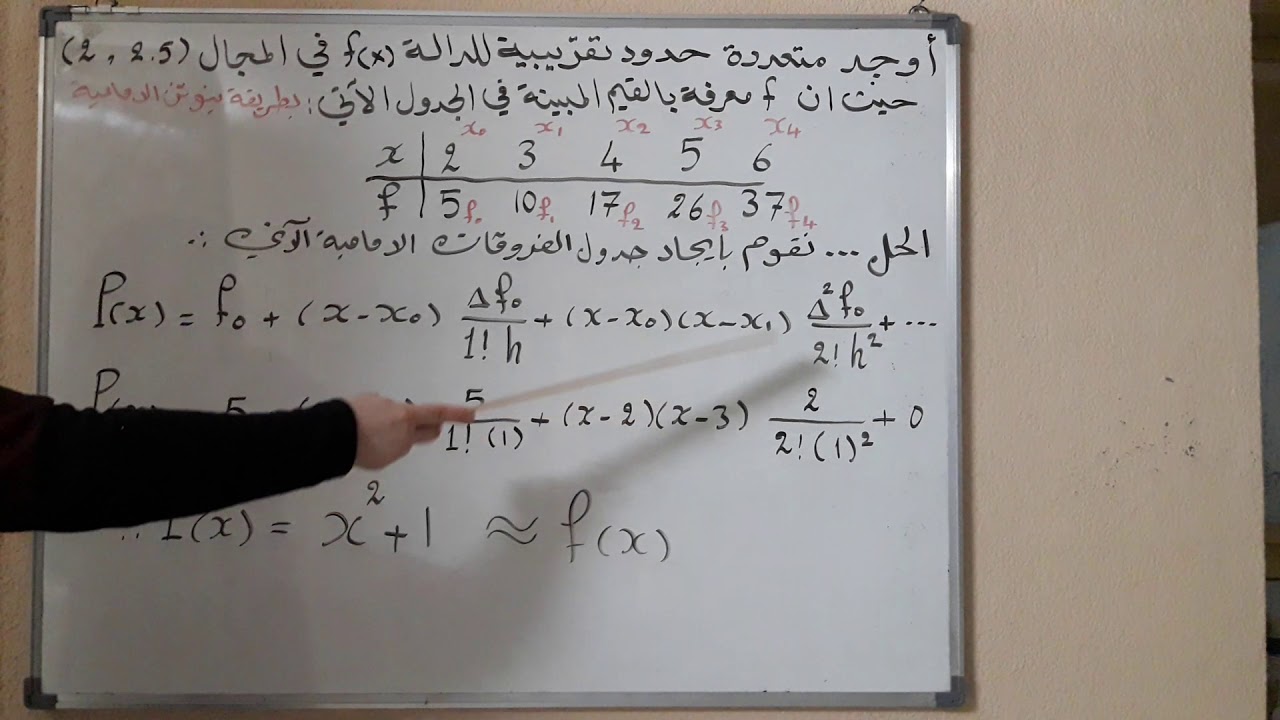 أوجد متعددة حدود تقريبية للدالة f(x) في المجال (2 , 2.5)
حيث ان f معرفة بالقيم المبينة في الجدول الآتي: بطريقة نيوتن الامامية
x₀ x₁ x₂ x₃ x₄
x | 2 3 4 5 6
f | 5 f₀ 10 f₁ 17 f₂ 26 f₃ 37 f₄
الحل ... نقوم بإيجاد جدول الفروقات الامامية الآتي :.
P(x) = f₀ + (x-x₀) Δf₀/(1! h) + (x-x₀)(x-x₁) Δ²f₀/(2! h²) + ...
5 5/(1! (1)) + (x-2)(x-3) 2/(2! (1)²) + 0
P(x) = x² + 1 ≈ f(x)